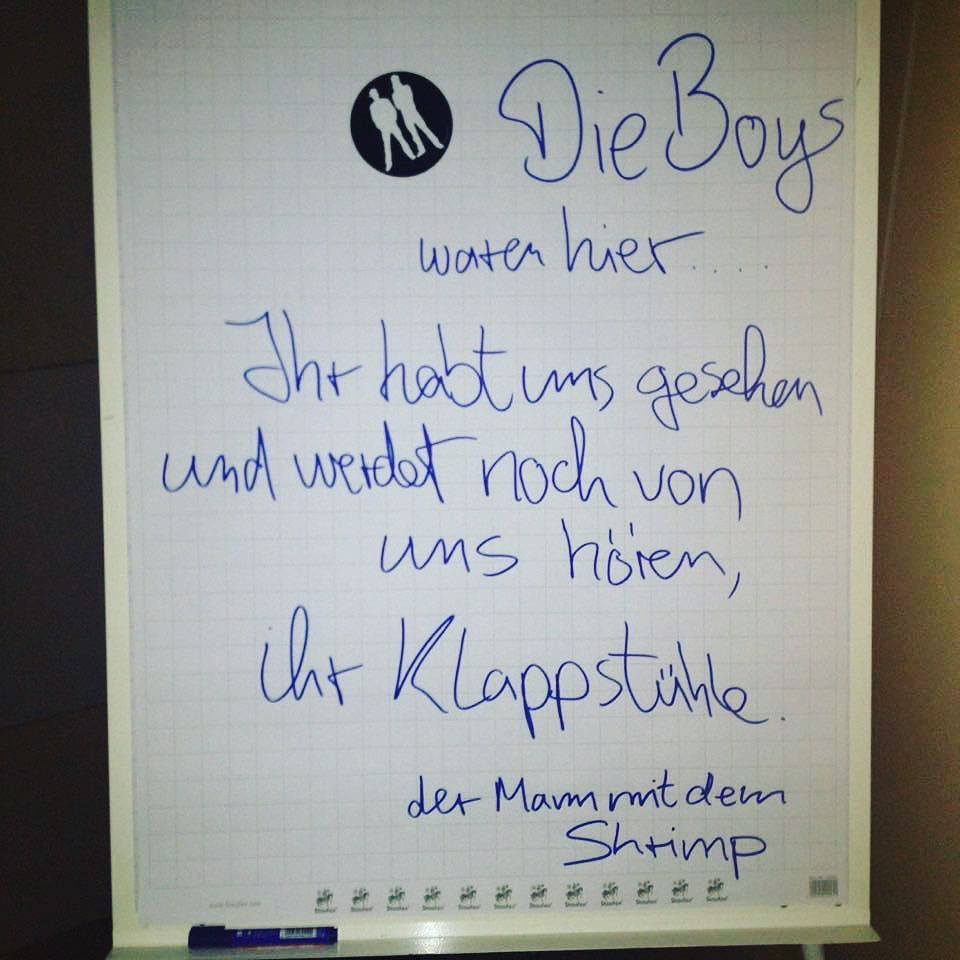 Die Boys
waren hier.....
Ihr habt uns gesehen
und werdet noch von
uns hören,
ihr Klappstühle.
der Mann mit dem
Shrimp